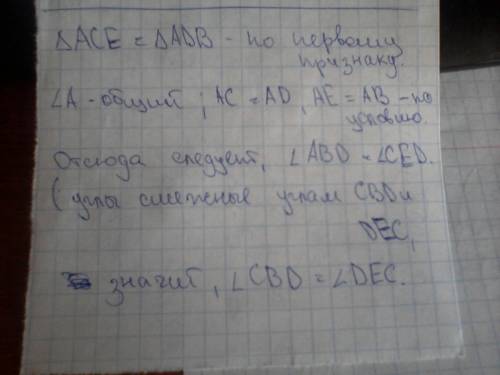 ΔACE = ΔADB - по первому
признаку.
∠A - общий ; AC = AD, AE = AB - по
условию.
Отсюда следует, ∠ABD = ∠CED.
( углы смежные углам CBD и
DEC,
значит, ∠CBD = ∠DEC.